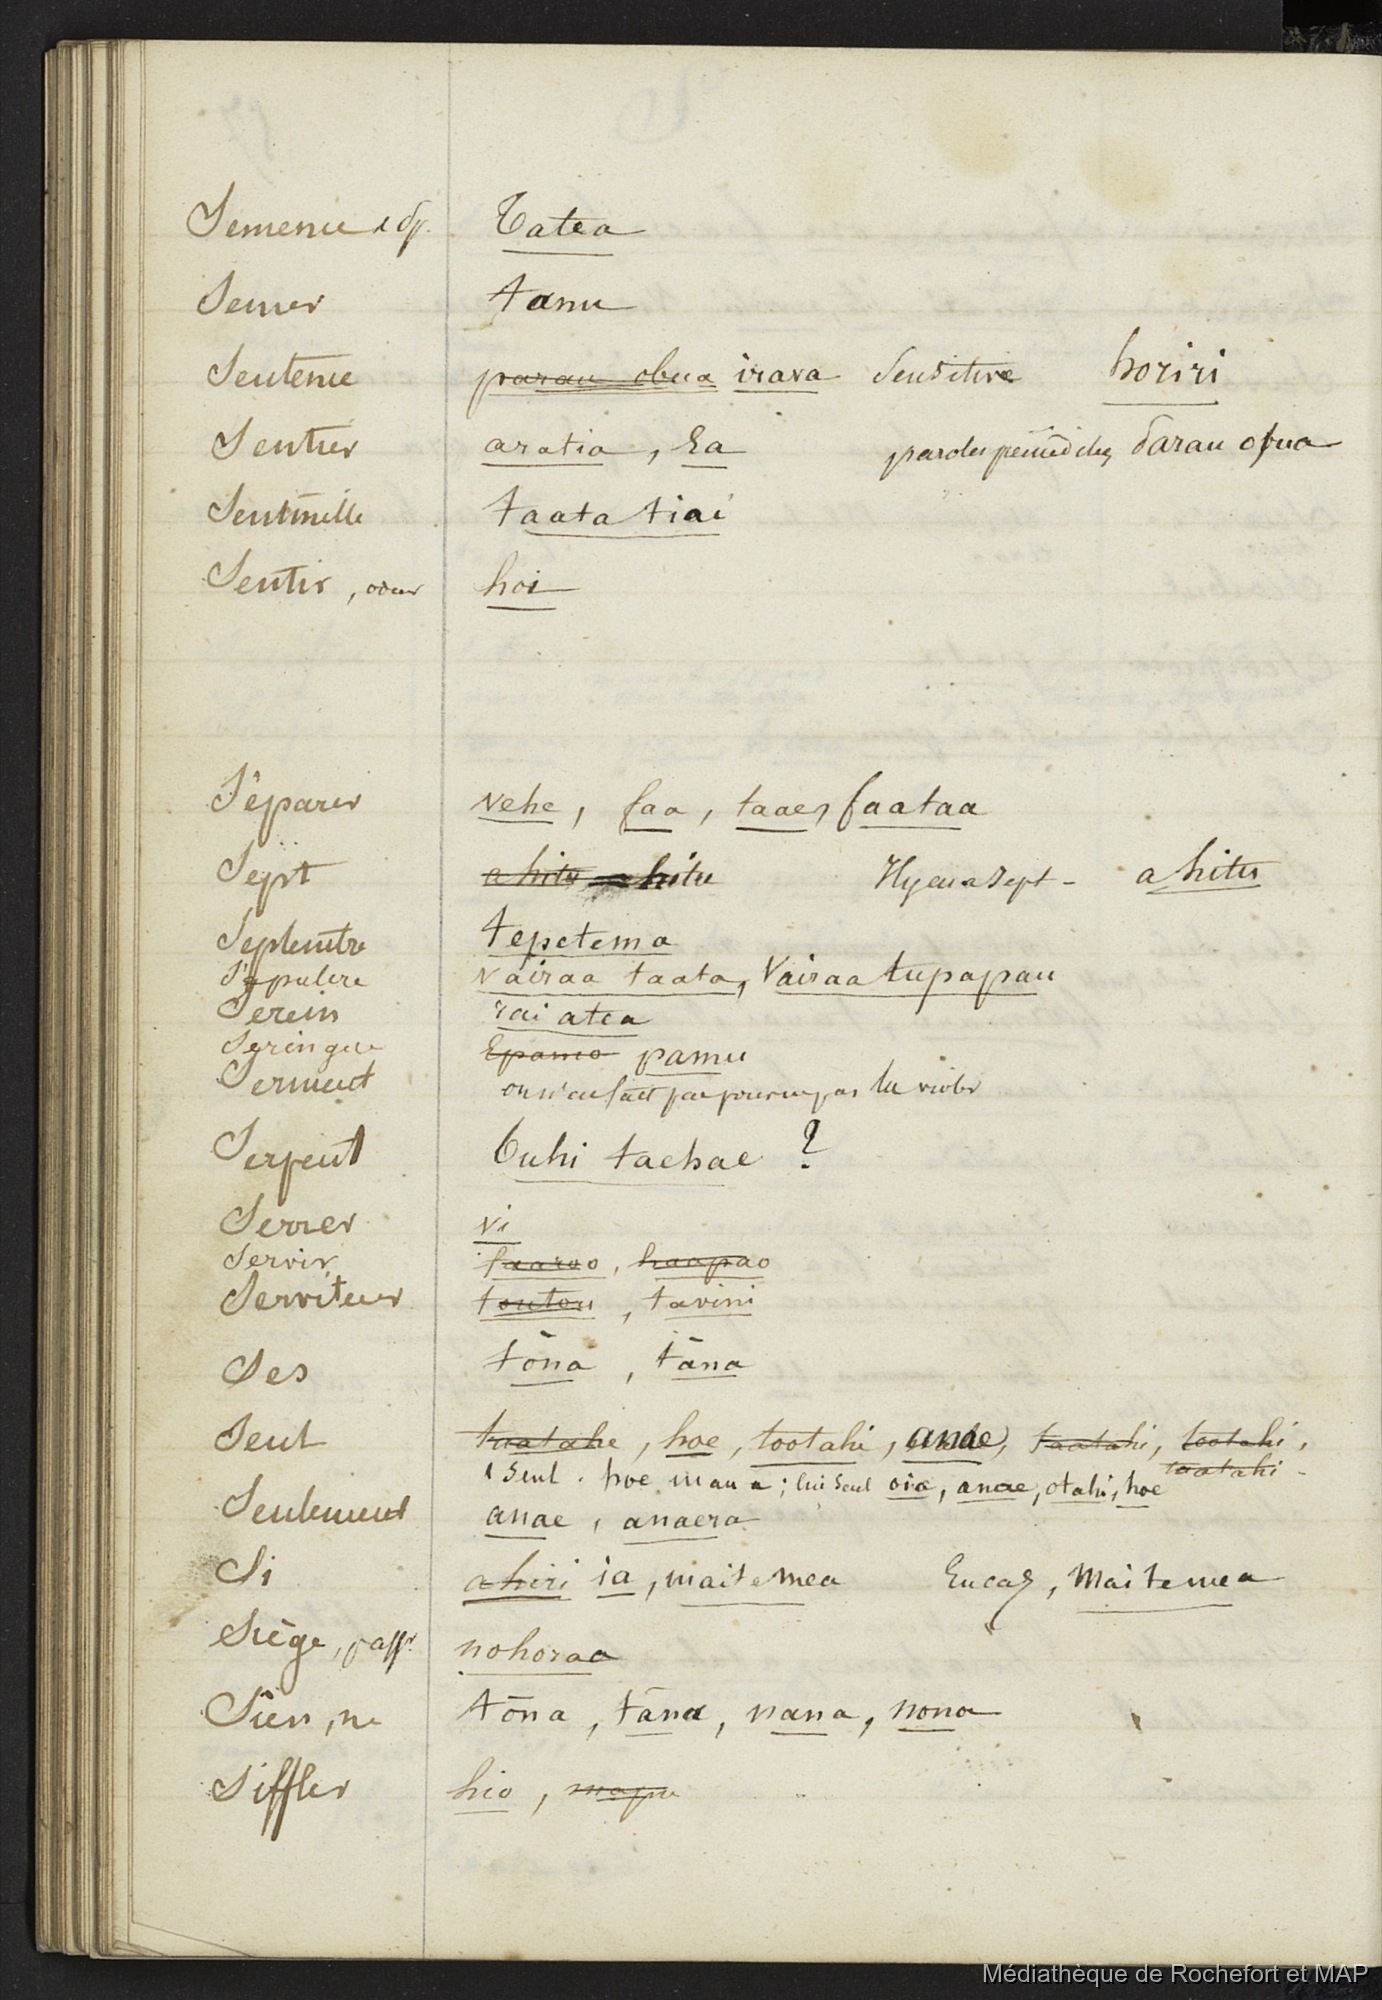 Semence Tatea
Semer tanu
Sentence parau obua irava Sensitive horiri
Sentier aratia, Ea paroles parau obua
Sentinelle taata tiai
Sentir, odeur hoi
Séparer vehe, faa, taae, faataa
Sept a hitu a hitu Il y en a sept - a hitu
Septembre tepetema
Sépulcre vairaa taata, Vairaa tupapau
Serein rai atea
Seringue Epamo pamu
Serment on n'en fait pas pour ne pas les violer
Serpent Puhi taehae ?
Serrer vi
Servir faaroo, haapao
Serviteur toutou, tavini
Ses tōna, tāna
Seul taatahe, hoe, tootahi, anae, taatahi, tootahi, taatahi -
1 seul. hoe mau a; lui seul oia, anae, otahi, hoe
Seulement anae, anaera
Si ahiri ia, maitemea En cas, Maitemea
Siège, nohoraa
Sien, ne tōna, tāna, nana, nona
Siffler hio, mapu
Médiathèque de Rochefort et MAP